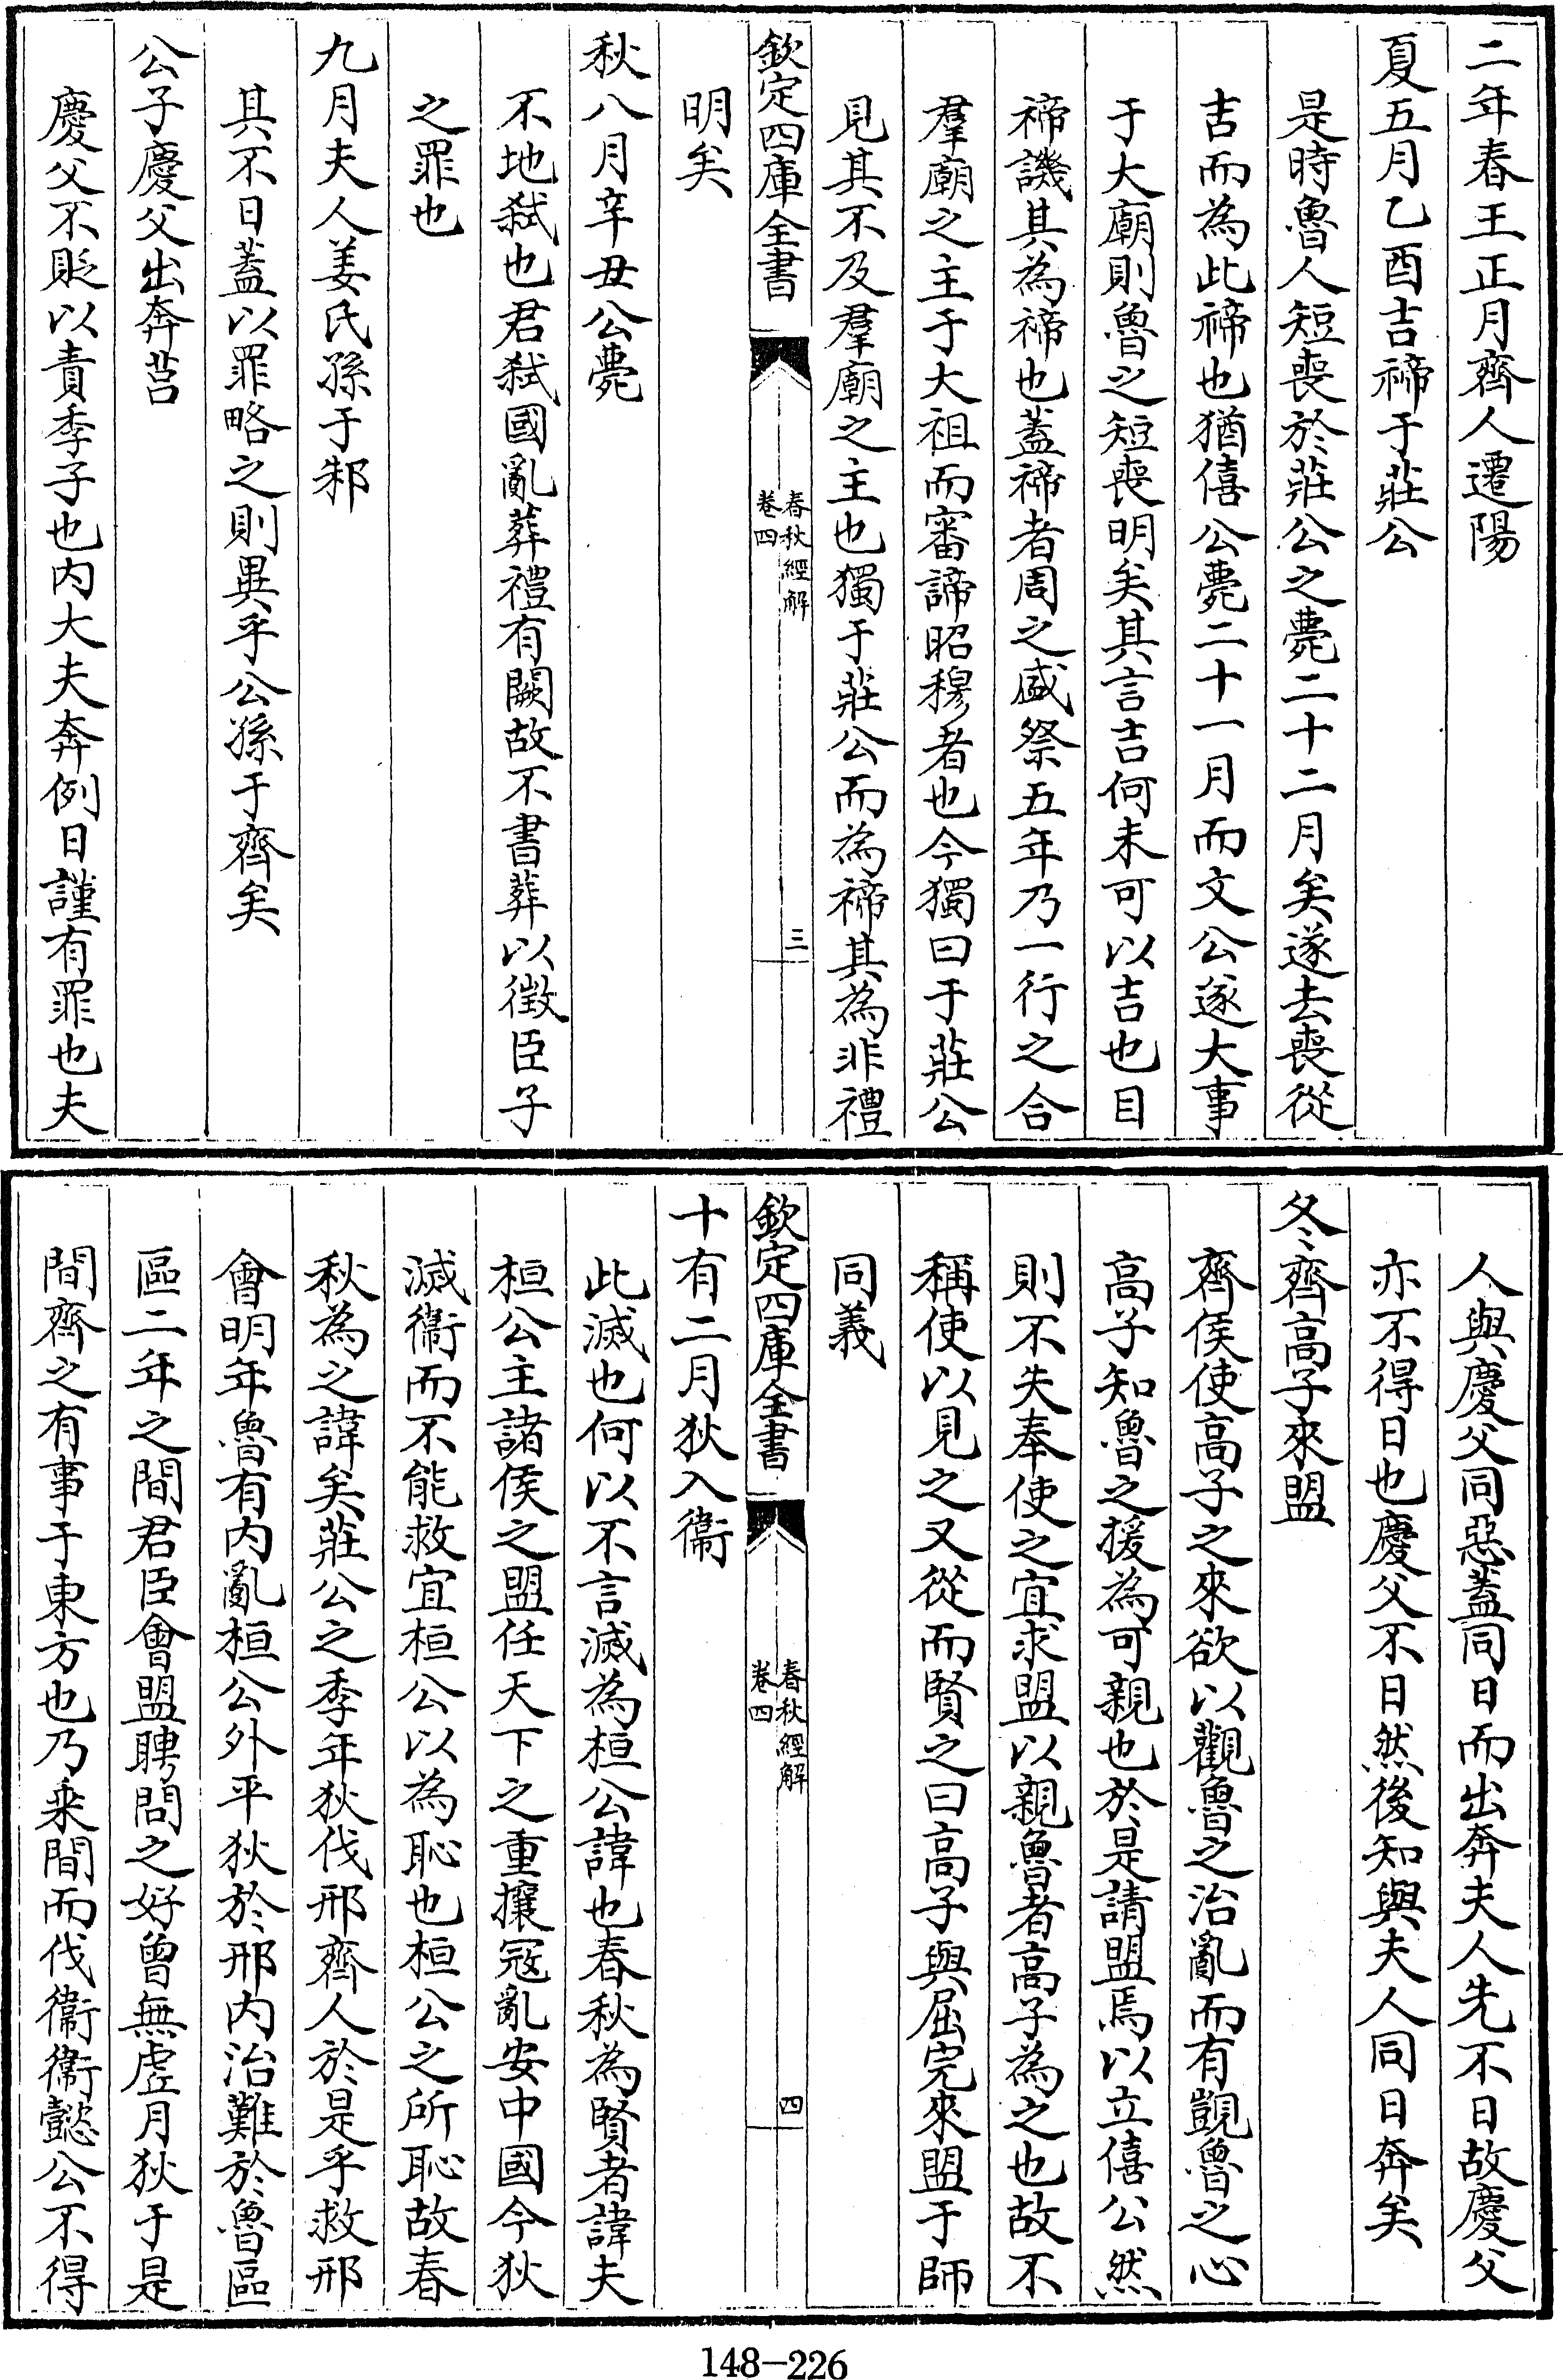 二年春王正月齊人遷陽
夏五月乙酉吉禘于莊公
是時魯人短喪於莊公之薨二十二月矣遂去喪從
吉而為此禘也猶僖公薨二十一月而文公遂大事
于大廟則魯之短喪明矣其言吉何未可以吉也目
禘譏其為禘也蓋禘者周之盛祭五年乃一行之合
羣廟之主于大祖而審諦昭穆者也今獨曰于莊公
見其不及羣廟之主也獨于莊公而為禘其為非禮
欽定四庫全書
春秋經解
卷四
三
明矣
秋八月辛丑公薨
不地弑也君弑國亂葬禮有闕故不書葬以徵臣子
之罪也
九月夫人姜氏孫于邾
其不日蓋以罪略之則異乎公孫于齊矣
公子慶父出奔莒
慶父不貶以責季子也内大夫奔例日謹有罪也夫
人與慶父同惡蓋同日而出奔夫人先不日故慶父
亦不得日也慶父不日然後知與夫人同日奔矣
冬齊高子來盟
齊侯使高子之來欲以觀魯之治亂而有覬魯之心
高子知魯之援為可親也於是請盟焉以立僖公然
則不失奉使之宜求盟以親魯者高子為之也故不
稱使以見之又從而賢之曰高子與屈完來盟于師
同義
欽定四庫全書
春秋經解
卷四
四
十有二月狄入衞
此滅也何以不言滅為桓公諱也春秋為賢者諱夫
桓公主諸侯之盟任天下之重攘冦亂安中國今狄
滅衞而不能救宜桓公以為恥也桓公之所恥故春
秋為之諱矣莊公之季年狄伐邢齊人於是乎救邢
會明年魯有内亂桓公外平狄於邢内治難於魯區
區二年之間君臣會盟聘問之好曾無虛月狄于是
間齊之有事于東方也乃乗間而伐衞衞懿公不得
148-226